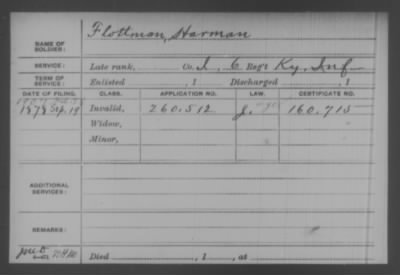 Flottman, Harman
NAME OF SOLDIER:
SERVICE: Late rank, Co. I, 6 Reg't Ky. Inf
TERM OF SERVICE: Enlisted , 1 Discharged , 1
DATE OF FILING. CLASS. APPLICATION NO. LAW. CERTIFICATE NO.
1878 Sep. 19 Invalid, 260.512 160.715
Widow,
Minor,
ADDITIONAL SERVICES:
REMARKS:
Died , 1 , at